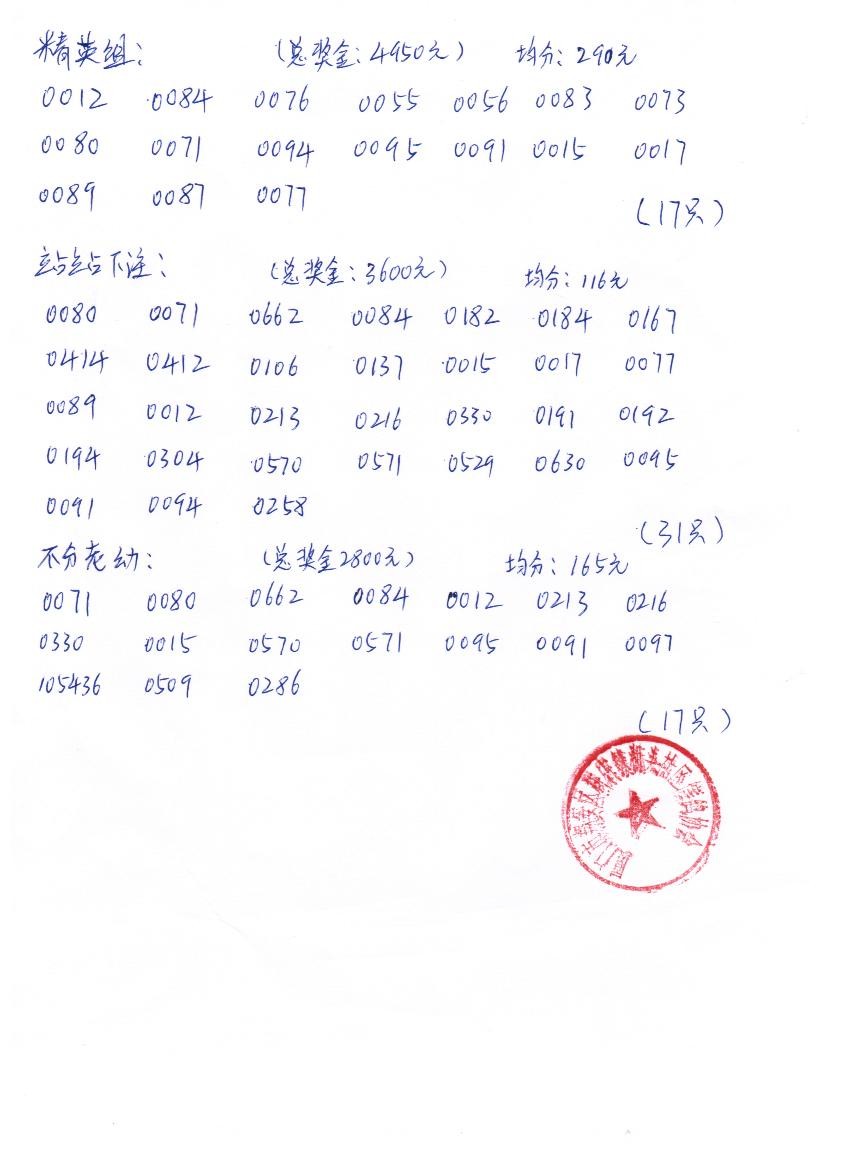 精英组: (总奖金:4950元) 均分:290元
0012 0084 0076 0055 0056 0083 0073
0080 0071 0094 0095 0091 0015 0017
0089 0087 0077
(17只)
站站下注: (总奖金:3600元) 均分:116元
0080 0071 0662 0084 0182 0184 0167
0414 0412 0106 0137 0015 0017 0077
0089 0012 0213 0216 0330 0191 0192
0194 0304 0570 0571 0529 0630 0095
0091 0094 0258
(31只)
不分老幼: (总奖金2800元) 均分:165元
0071 0080 0662 0084 0012 0213 0216
0330 0015 0570 0571 0095 0091 0097
105436 0509 0286
(17只)
厦门市翔安区新店镇社区信鸽协会